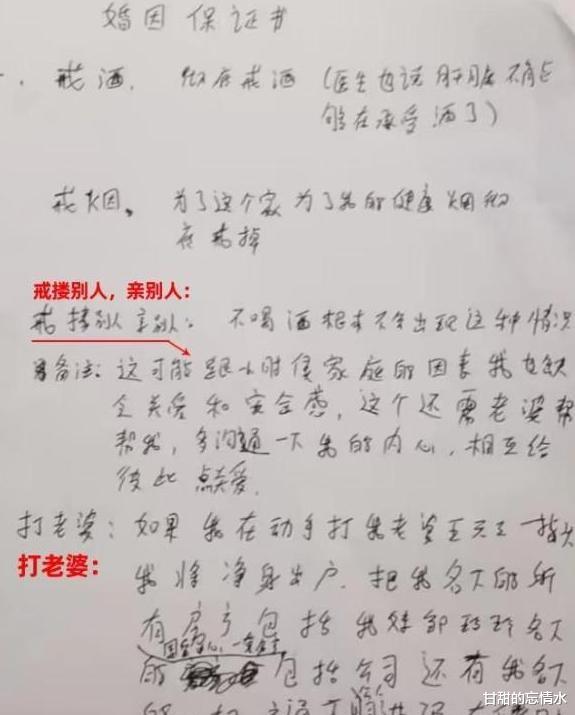 婚因保证书
一. 戒酒. 彻底戒酒 (医生也说肝脏不能
够在承受酒了)
戒烟. 为了这个家为了我的健康烟彻
底戒掉
戒搂别人，亲别人：
戒搂别人亲别人: 不喝酒根本不会出现这种情况
备注: 这可能跟小时侯家庭的因素我也缺
全关爱和安全感, 这个还需老婆帮
帮我, 多沟通一下我的内心, 相互给
彼此点关爱.
打老婆: 如果我在动手打我老婆王元工指头
打老婆：
我将净身出户. 把我名下的所
有房子包括我妹邹玲玲名下
的 包括公司还有我名下
甘甜的忘情水